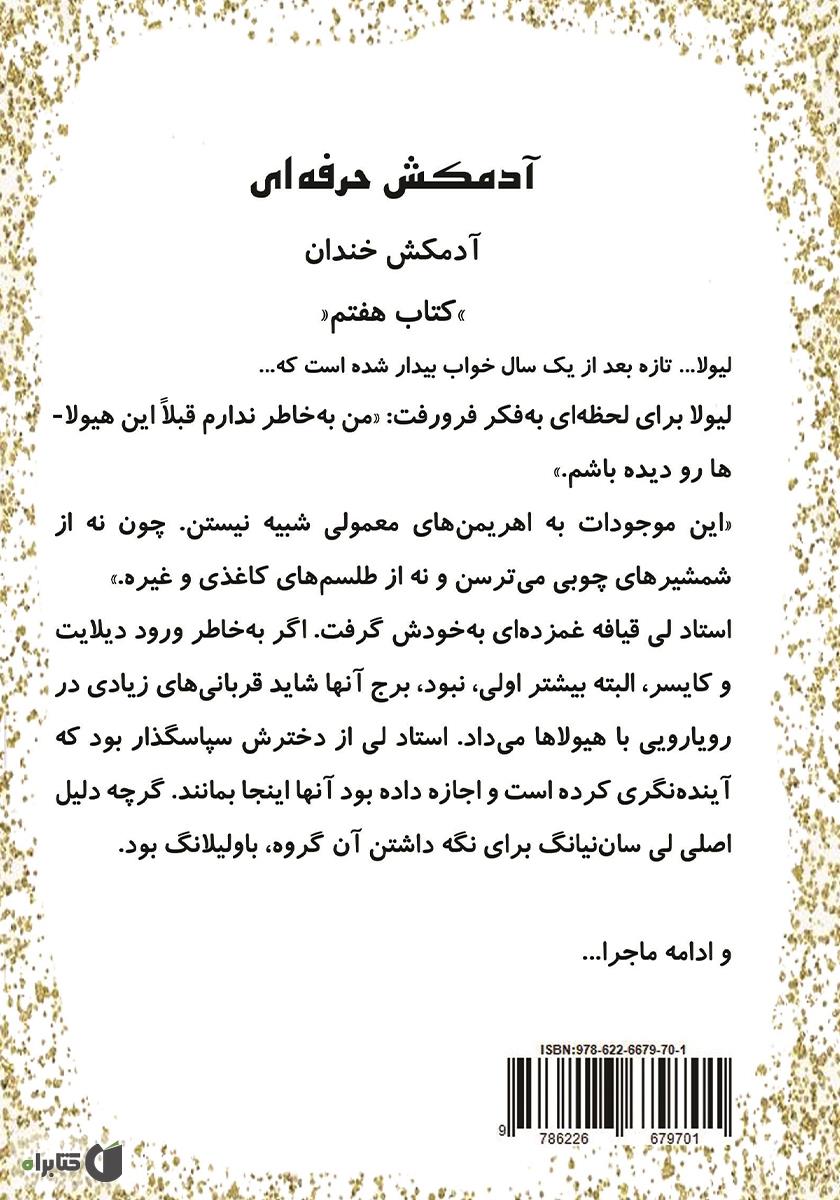 آدمکش حرفه‌ای
آدمکش خندان
»کتاب هفتم«
لیولا... تازه بعد از یک سال خواب بیدار شده است که...
لیولا برای لحظه‌ای به‌فکر فرورفت: «من به‌خاطر ندارم قبلاً این هیولا-
ها رو دیده باشم.»
«این موجودات به اهریمن‌های معمولی شبیه نیستن. چون نه از
شمشیرهای چوبی می‌ترسن و نه از طلسم‌های کاغذی و غیره.»
استاد لی قیافه غمزده‌ای به‌خودش گرفت. اگر به‌خاطر ورود دیلایت
و کایسر، البته بیشتر اولی، نبود، برج آنها شاید قربانی‌های زیادی در
رویارویی با هیولاها می‌داد. استاد لی از دخترش سپاسگذار بود که
آینده‌نگری کرده است و اجازه داده بود آنها اینجا بمانند. گرچه دلیل
اصلی لی سان‌نیانگ برای نگه داشتن آن گروه، باولیلانگ بود.
و ادامه ماجرا...
ISBN:978-622-6679-70-1
9 786226 679701
کتابراه